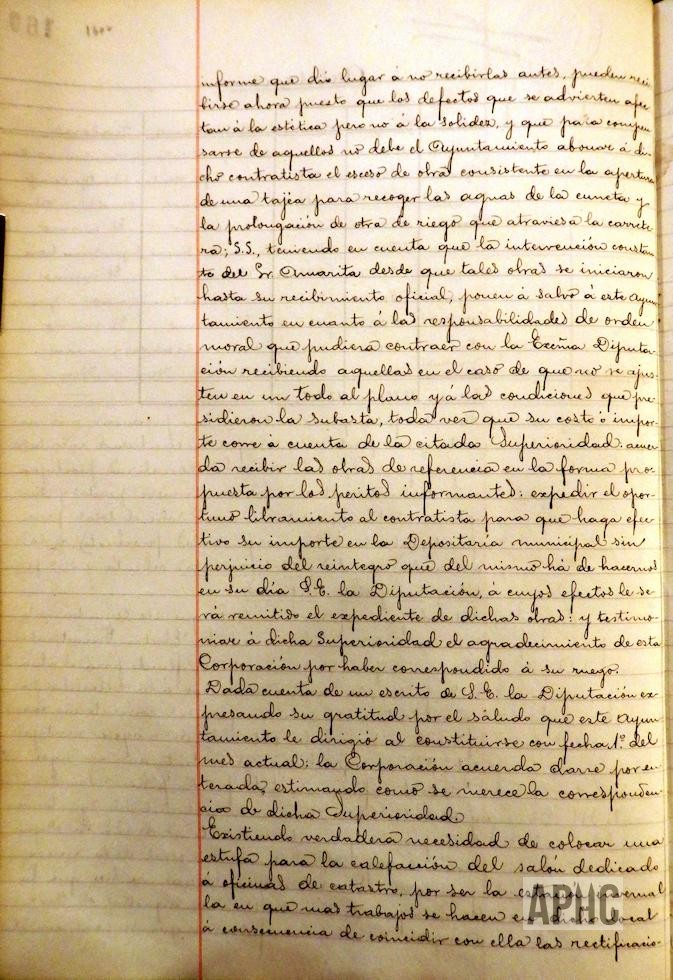 informe que dió lugar á no recibirlas antes, pueden reci-
birse ahora puesto que los defectos que se advierten afec-
tan á la estética pero no á la solidez, y que para compen-
sarse de aquellos no debe el Ayuntamiento abonar á di-
cho contratista el esceso de obra consistente en la apertura
de una tajea para recoger las aguas de la cuneta y
la prolongación de otra de riego que atraviesa la carrete-
ra; S.S., teniendo en cuenta que la intervención constan-
te del Sr. Amarita desde que tales obras se iniciaron
hasta su recibimiento oficial, ponen á salvo á este Ayun-
tamiento en cuanto á las responsabilidades de orden
moral que pudiera contraer con la Excma Diputa-
ción recibiendo aquellas en el caso de que no se ajus-
ten en un todo al plano y á las condiciones que pre-
sidieron la subasta, toda vez que su costo ó impor-
te corre á cuenta de la citada Superioridad: acuer-
da recibir las obras de referencia en la forma pro-
puesta por los peritos informantes: expedir el opor-
tuno libramiento al contratista para que haga efec-
tivo su importe en la Depositaría municipal sin
perjuicio del reintegro que del mismo há de hacernos
en su día S.E. la Diputación, á cuyos efectos le se-
rá remitido el expediente de dichas obras: y testimo-
niar á dicha Superioridad el agradecimiento de esta
Corporación por haber correspondido á su ruego.
Dada cuenta de un escrito de S.E. la Diputación ex-
presando su gratitud por el saludo que este Ayun-
tamiento le dirigió al constituirse con fecha 1º. del
mes actual; la Corporación acuerda darse por en-
terada, estimando como se merece la corresponden-
cia de dicha Superioridad.
Existiendo verdadera necesidad de colocar una
estufa para la calefacción del salón dedicado
á oficinas de catastro, por ser la estación invernal
la en que mas trabajos se hacen en dicho local
á consecuencia de coincidir con ella las rectificacio-
APHC